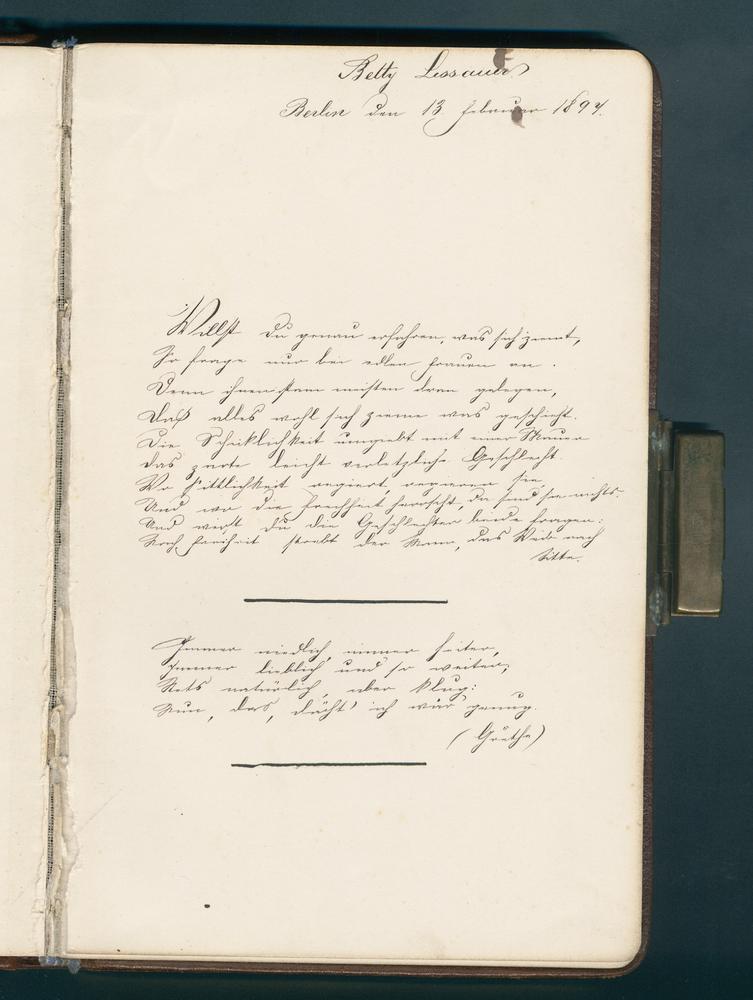 Betty Lessauer
Berlin den 13. Februar 1894.
Willst du genau erfahren, was sich ziemt,
So frage nur bei edlen Frauen an.
Denn ihnen ist am meisten dran gelegen,
Daß alles wohl sich zieme was geschieht.
Die Schicklichkeit umgiebt mit einer Mauer
das zarte leicht verletzliche Geschlecht.
Wo Sittlichkeit regiert, regieren sie,
Und wo die Frechheit herrscht, da sind sie nichts.
Und wirst du die Geschlechter beide fragen:
Nach Freiheit strebt der Mann, das Weib nach
Sitte.
Immer niedlich, immer heiter,
Immer lieblich und so weiter,
Stets natürlich, aber klug:
Nun, das, dächt' ich wär' genug.
(Goethe)